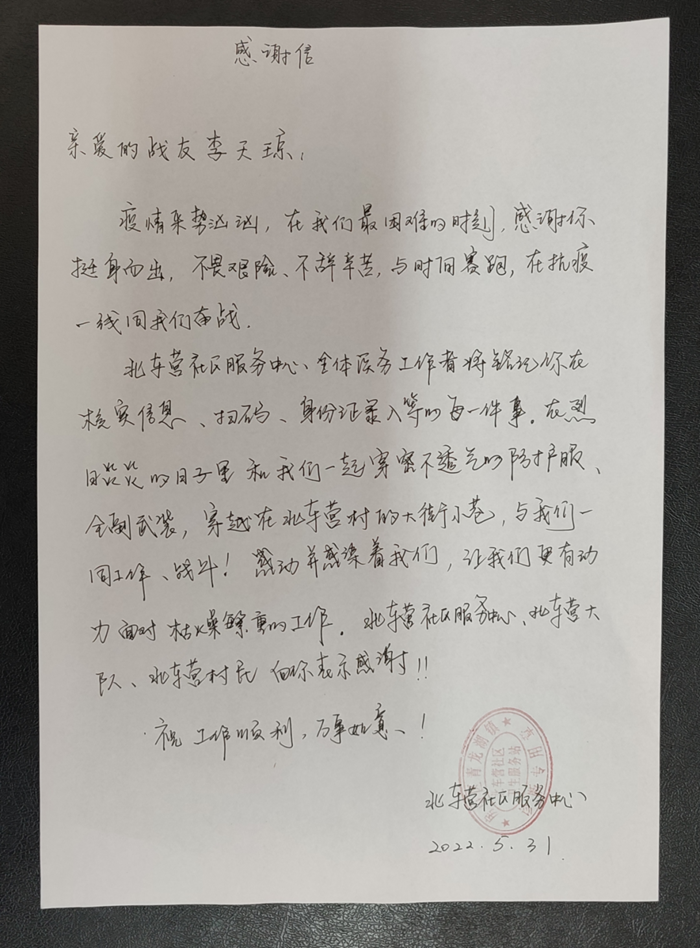 感谢信
亲爱的战友李天琼：
疫情来势汹汹，在我们最困难的时刻，感谢你
挺身而出，不畏艰险、不辞辛苦，与时间赛跑，在抗疫
一线同我们奋战.
北车营社区服务中心、全体医务工作者将铭记你在
核实信息、扫码、身份证录入等的每一件事。在烈
日炎炎的日子里和我们一起穿密不透气的防护服、
全副武装，穿越在北车营村的大街小巷，与我们一
同工作、战斗！感动并感染着我们，让我们更有动
力面对枯燥繁重的工作。北车营社区服务中心、北车营大
队、北车营村民向你表示感谢！！
祝工作顺利，万事如意、！
青龙湖镇
车营社区
生服务站
北车营社区服务中心
2022.5.31